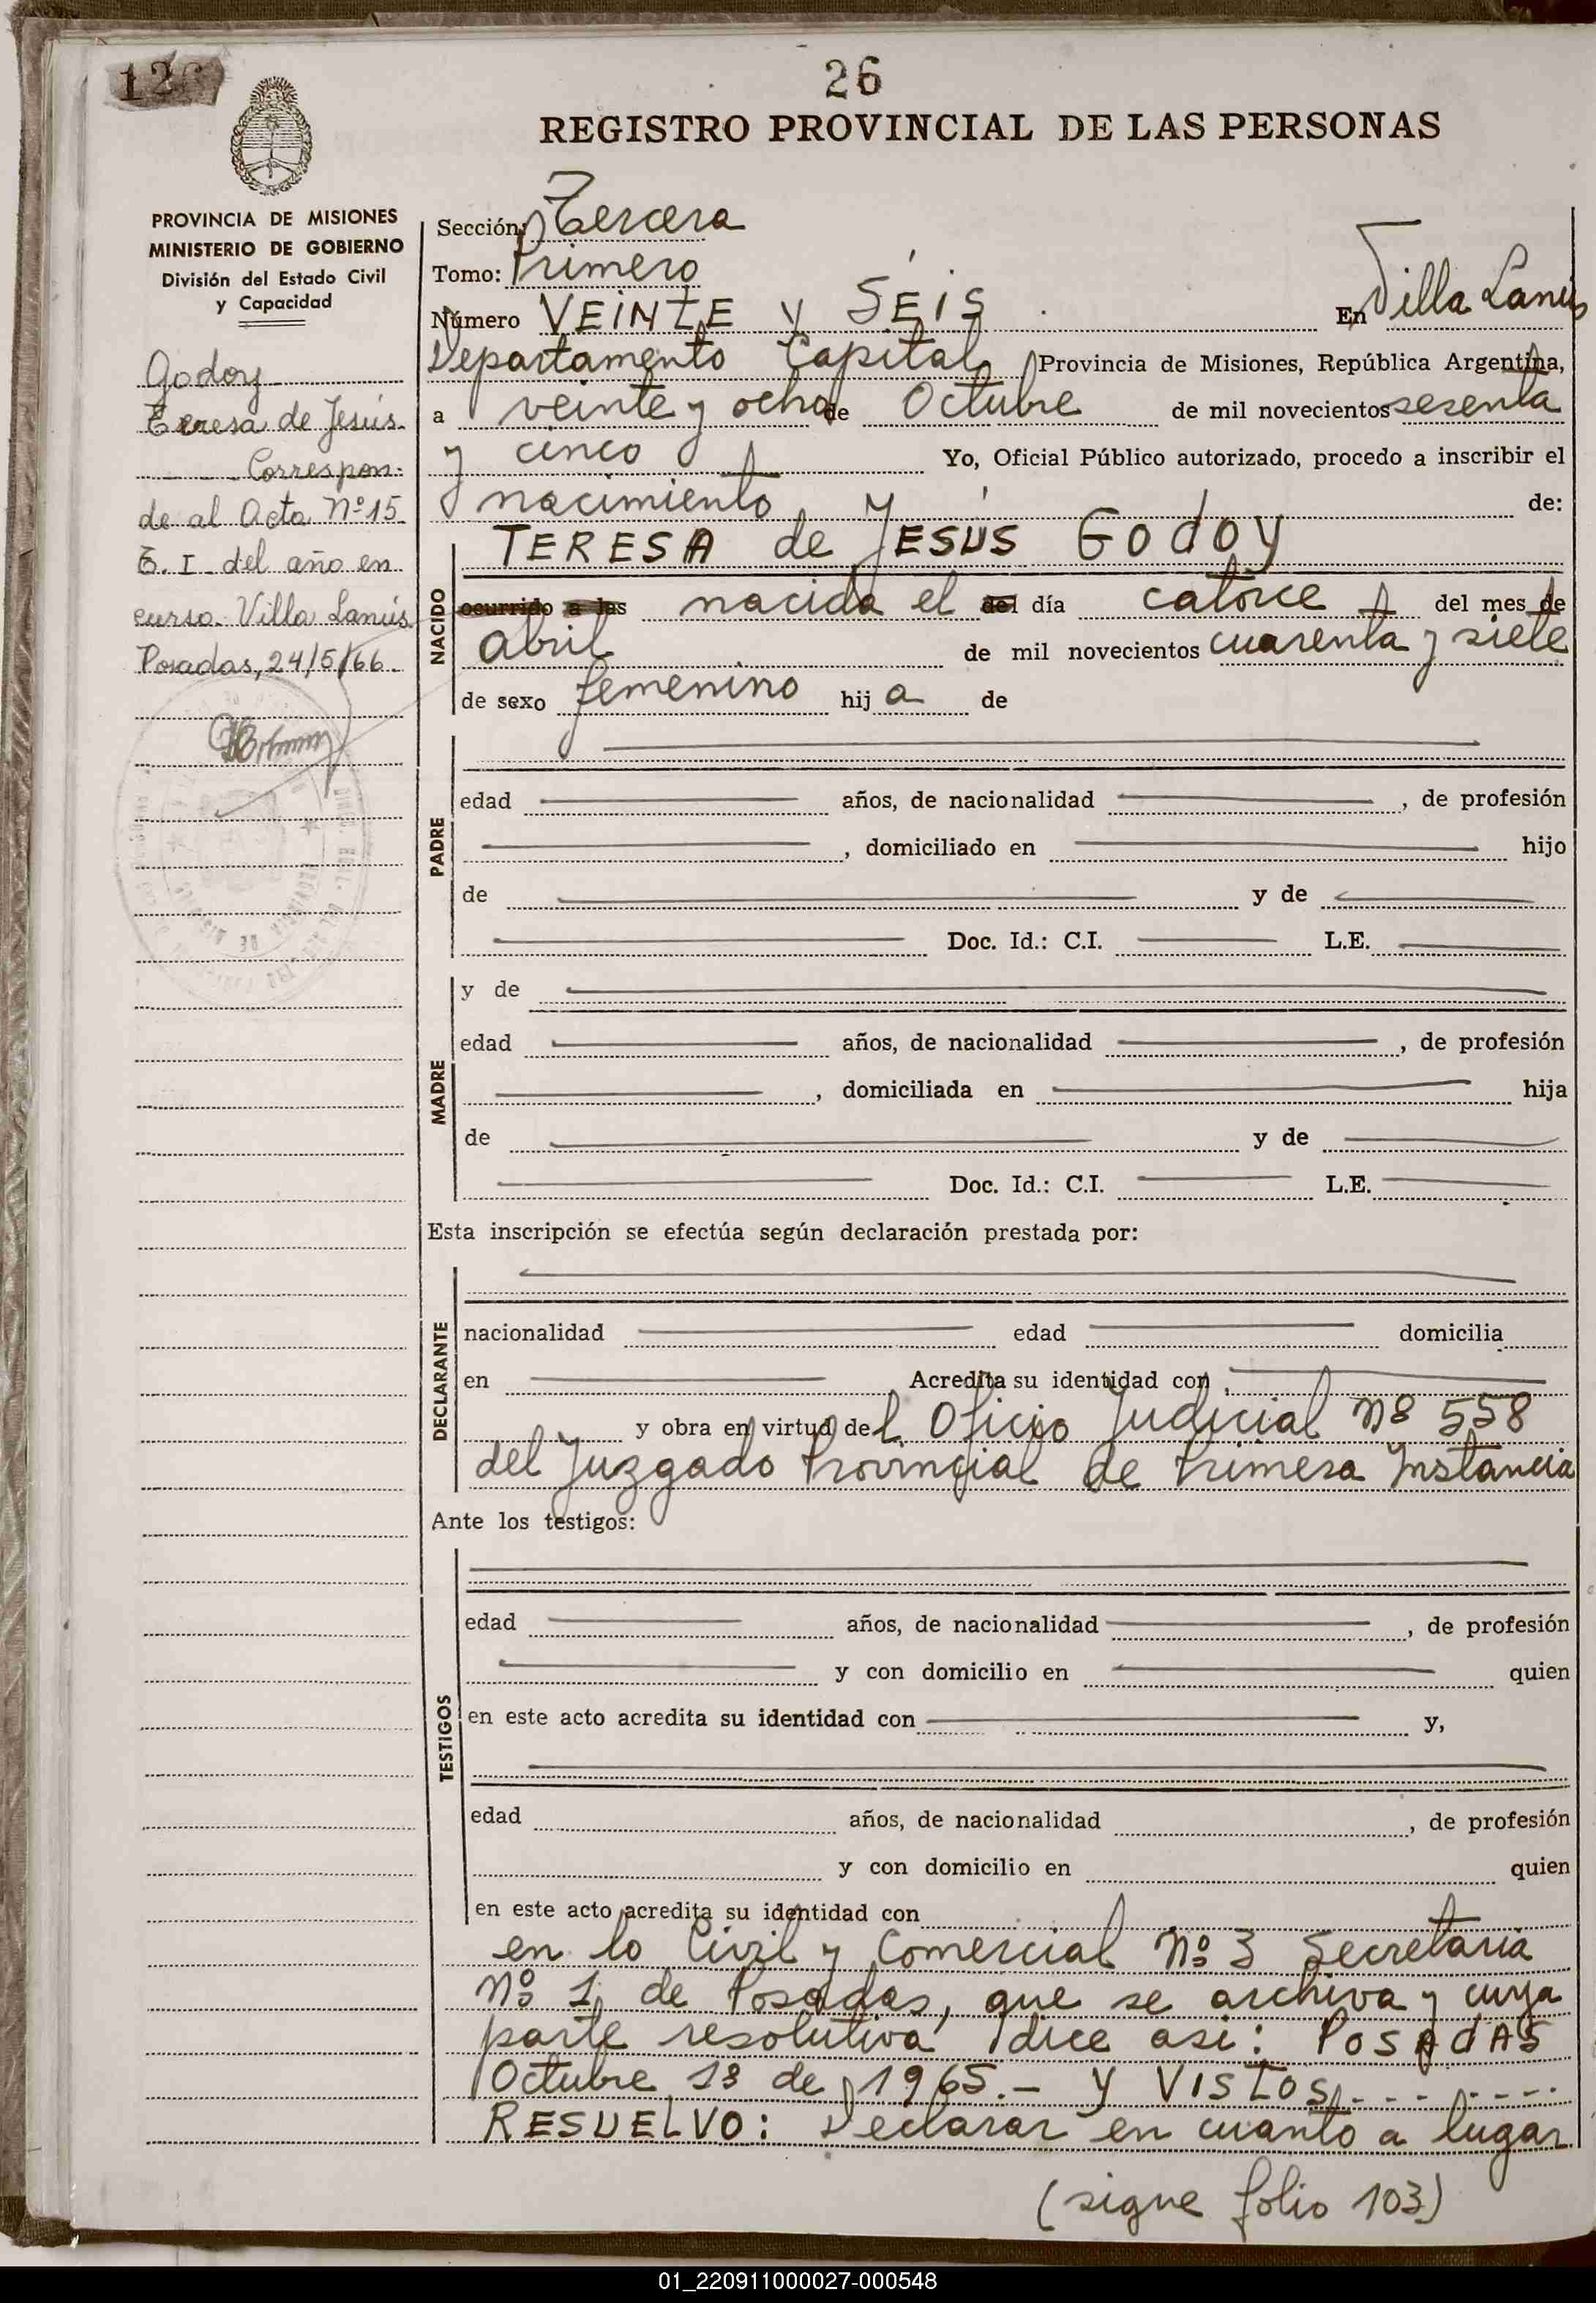 126
26
REGISTRO PROVINCIAL DE LAS PERSONAS
PROVINCIA DE MISIONES
MINISTERIO DE GOBIERNO
División del Estado Civil
y Capacidad
Godoy
Teresa de Jesús.
Correspon-
de al Acta Nº 15
T. I. del año en
curso. Villa Lanús
Posadas, 24/5/66.
Sección: Tercera
Tomo: Primero
Número VEINTE y SEIS En Villa Lanús
Departamento Capital Provincia de Misiones, República Argentina,
a veinte y ocho de Octubre de mil novecientos sesenta
y cinco Yo, Oficial Público autorizado, procedo a inscribir el
nacimiento de:
NACIDO
TERESA de JESÚS GODOY
ocurrido a las nacida el del día catorce del mes de
abril de mil novecientos cuarenta y siete
de sexo femenino hij a de
PADRE
edad años, de nacionalidad , de profesión
, domiciliado en hijo
de y de
Doc. Id.: C.I. L.E.
MADRE
y de
edad años, de nacionalidad , de profesión
, domiciliada en hija
de y de
Doc. Id.: C.I. L.E.
Esta inscripción se efectúa según declaración prestada por:
DECLARANTE
nacionalidad edad domicilia
en Acredita su identidad con
y obra en virtud del Oficio Judicial Nº 558
del Juzgado Provincial de Primera Instancia
Ante los testigos:
TESTIGOS
edad años, de nacionalidad , de profesión
y con domicilio en quien
en este acto acredita su identidad con y,
edad años, de nacionalidad , de profesión
y con domicilio en quien
en este acto acredita su identidad con
en lo Civil y Comercial Nº 3 Secretaria
Nº 1 de Posadas, que se archiva y cuya
parte resolutiva dice asi: POSADAS
Octubre 13 de 1965.- Y VISTOS, - - - - - - -
RESUELVO: Declarar en cuanto a lugar
(sigue folio 103)
01_220911000027-000548